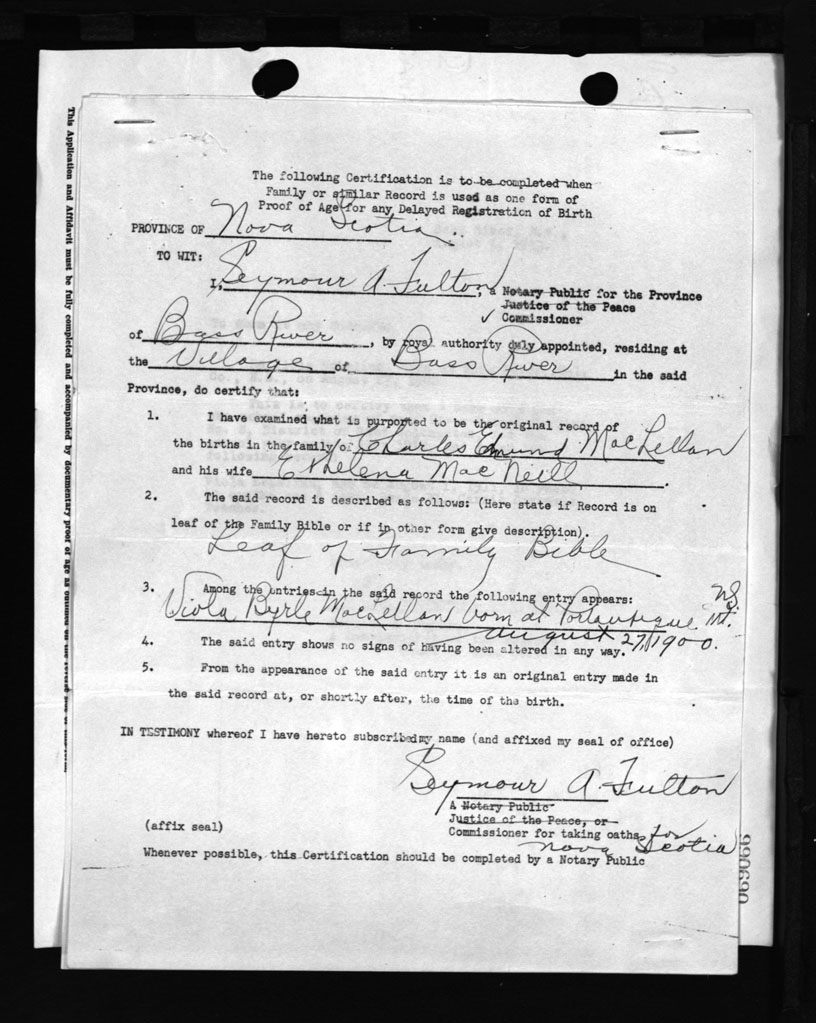 The following Certification is to be completed when
Family or similar Record is used as one form of
Proof of Age for any Delayed Registration of Birth
PROVINCE OF Nova Scotia
TO WIT:
I, Seymour A. Fulton, a Notary Public for the Province
Justice of the Peace
✓ Commissioner
of Bass River, by royal authority duly appointed, residing at
the Village of Bass River in the said
Province, do certify that:
1. I have examined what is purported to be the original record of
the births in the family of Charles Edmund MacLellan
and his wife Ethelena MacNeill.
2. The said record is described as follows: (Here state if Record is on
leaf of the Family Bible or if in other form give description).
Leaf of Family Bible
3. Among the entries in the said record the following entry appears:
Viola Byrle MacLellan born at Portaupique Mt. NS
August 27, 1900.
4. The said entry shows no signs of having been altered in any way.
5. From the appearance of the said entry it is an original entry made in
the said record at, or shortly after, the time of the birth.
IN TESTIMONY whereof I have hereto subscribed my name (and affixed my seal of office)
Seymour A. Fulton
A Notary Public
Justice of the Peace, or
(affix seal) Commissioner for taking oaths for
Nova Scotia
Whenever possible, this Certification should be completed by a Notary Public
This Application and Affidavit must be fully completed and accompanied by documentary proof of age as